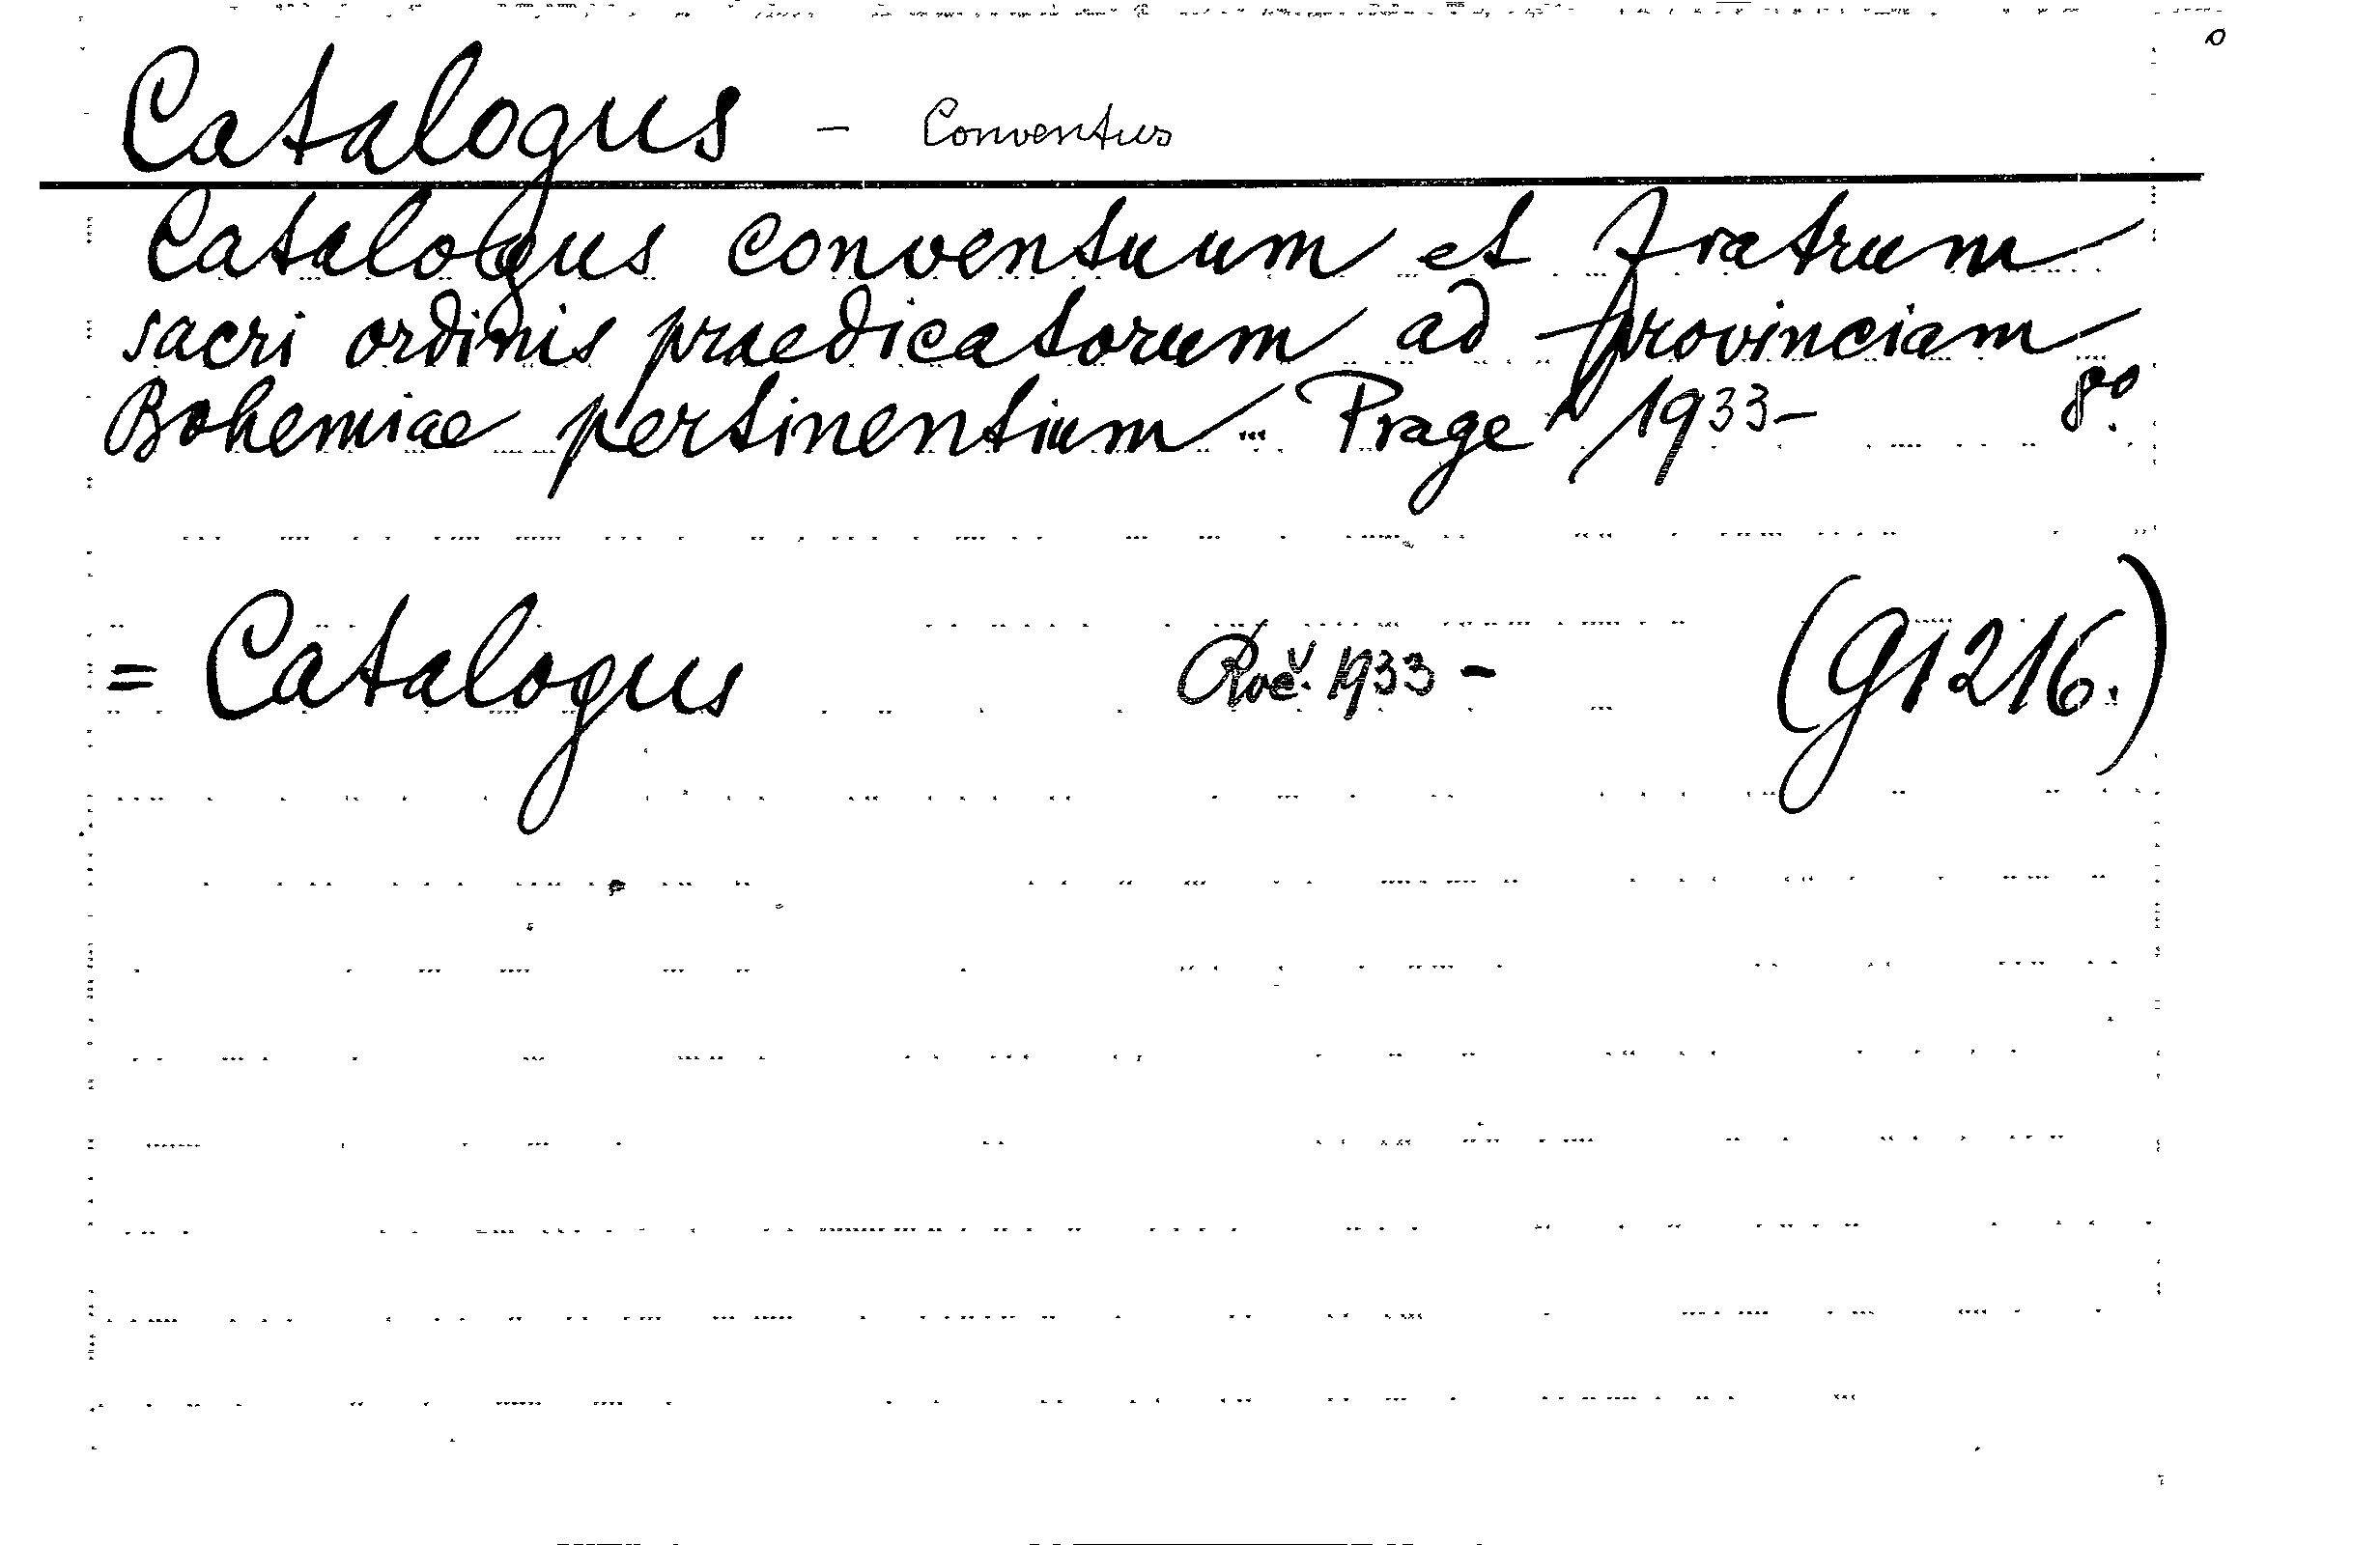 Catalogus - Conventus
Catalogus conventuum et fratrum
sacri ordinis praedicatorum ad provinciam
Bohemiae pertinentium Prage 1933- 8°.
= Catalogus Roč. 1933 - (G1216.)